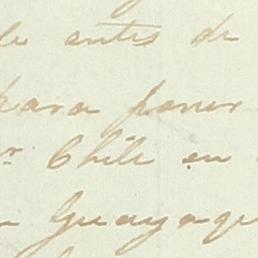 de antes de
para poner
Chile en
Guayaqu